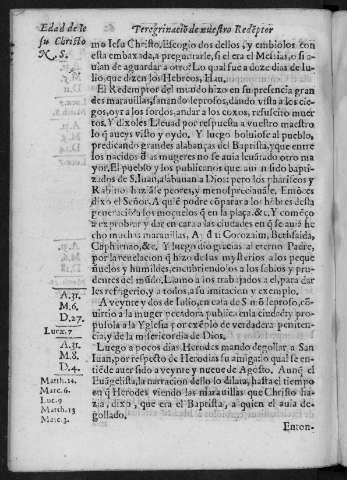 Edad de Ie
su Christo
N. S.
Peregrinaciõ de nuestro Redẽptor
mo Iesu Christo, Escogio dos dellos, y embiolos con
esta embaxada, a preguntarle, si el era el Mesias, o si a-
uian de aguardar a otro. Lo qual fue a doze dias de Iu-
lio, que dizen los Hebreos, Hau.
El Redemptor del mundo hizo en su presencia gran
des marauillas, sanando leprosos, dando vista a los cie-
gos, oyr a los sordos, andar a los coxos, resuscito muer
tos. Y dixoles Lleuad por respuesta a vuestro maestro
lo q̃ aueys visto y oydo. Y luego boluiose al pueblo,
predicando grandes alabanças del Baptista, y que entre
los nacidos d̃ las mugeres no se auia leuãtado otro ma
yor. El pueblo y los publicanos que auian sido bapti-
zados de S. Iuan, alabauan a Dios: pero los phariseos y
Rabinos haziãle peores, y menospreciauãle. Entõces
dixo el Señor. A quiẽ podre cõparar a los hõbres desta
generaciõ? a los moçuelos q̃ en la plaça. &c. Y comẽço
a exprobar y dar en cara a las ciudades en q̃ se auiã he
cho muchas marauillas. A ti Corozaim, Bethsaida,
Capharnao, &c. Y luego dio gracias al eterno Padre,
por la reuelacion q̃ hizo de sus mysterios a los peque
ñuelos y humildes, encubriendolos a los sabios y pru-
dentes del mũdo. Llamo a los trabajados a el, para dar
les refrigerio, y a todos, a su imitacion y exemplo.
A veynte y dos de Iulio, en casa de Simõ leproso, cõ-
uirtio a la muger peccadora publica en la ciudad: y pro
pusola a la Yglesia por exẽplo de verdadera peniten-
cia, y de la misericordia de Dios.
Luego a pocos dias Herodes mando degollar a San
Iuan, por respecto de Herodias su amiga: lo qual se en-
tiẽde auer sido a veynte y nueue de Agosto. Aunq̃ el
Euãgelista, la narracion desto lo dilata, hasta el tiempo
en q̃ Herodes viendo las marauillas que Christo ha-
zia, dixo, que era el Baptista, a quien el auia de-
gollado.
Enton-
A. 31.
M. 6.
D. 27.
Lucæ. 7
A. 31.
M. 8.
D. 4.
Matth. 14.
Marc. 6.
Luc. 9
Matth. 13
Marc. 3.